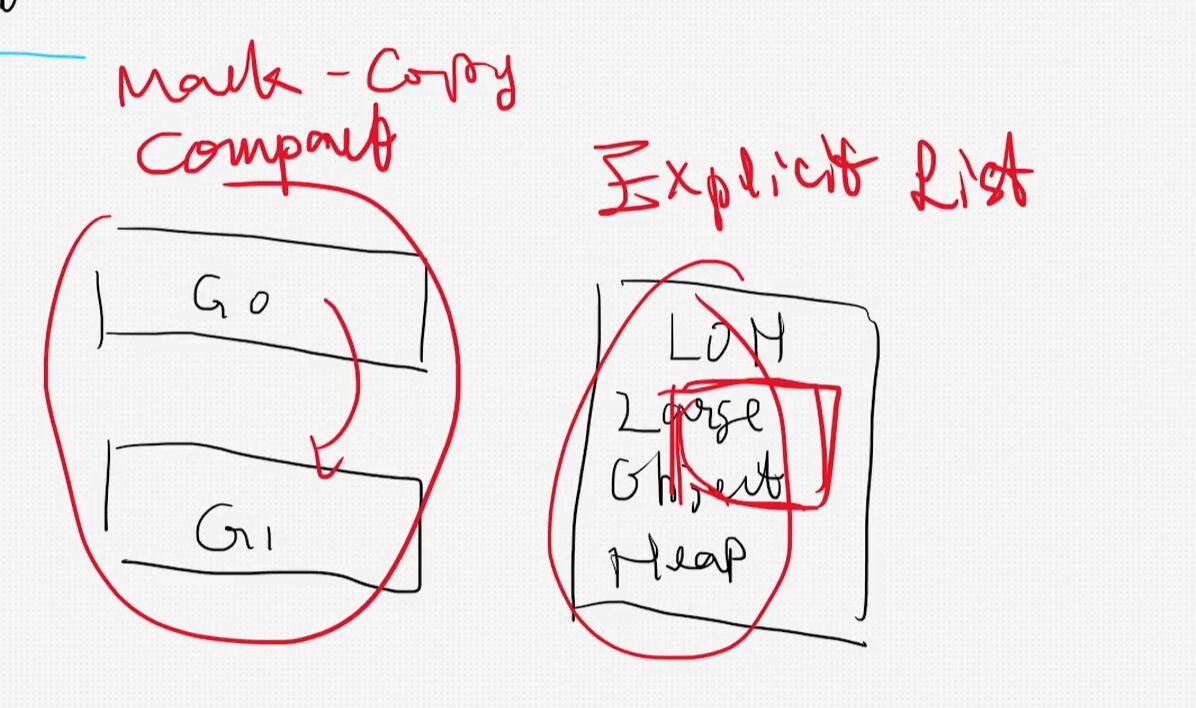 Mark - Copy
Compact
Explicit List
G0
G1
LOH
Large
Object
Heap